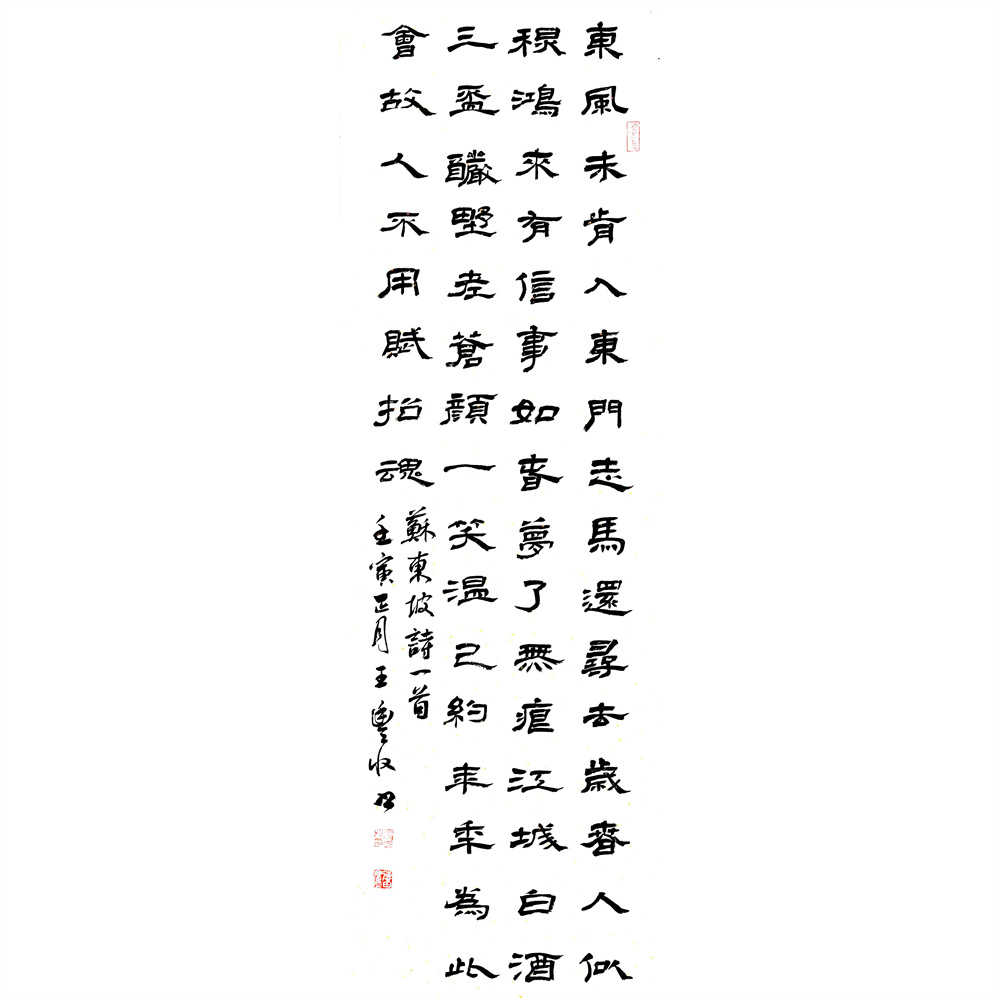 東風未肯入東門走馬還尋去歲春人似
秋鴻來有信事如春夢了無痕江城白酒
三盃釅野老蒼顏一笑温已約年年為此
會故人不用賦招魂
蘇東坡詩一首
壬寅正月王豐收书